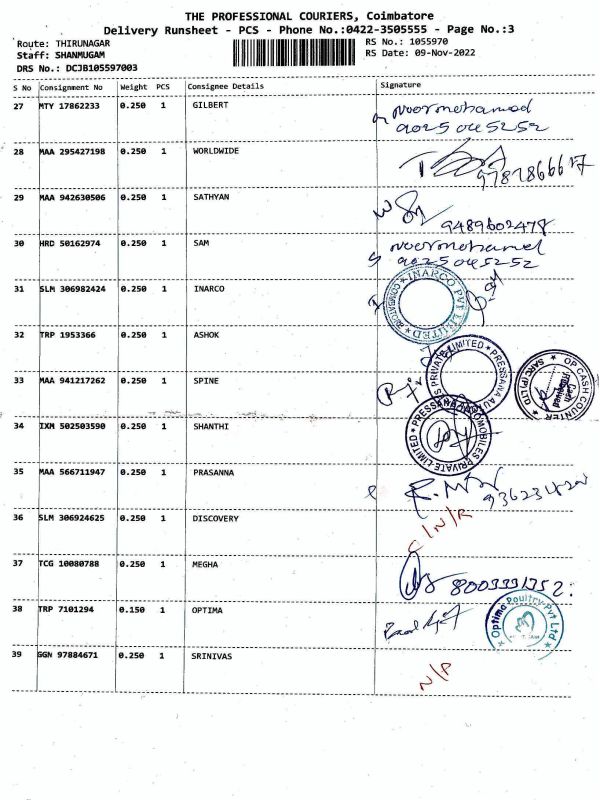 THE PROFESSIONAL COURIERS, Coimbatore
Delivery Runsheet - PCS - Phone No.:0422-3505555 - Page No.:3
Route: THIRUNAGAR RS No.: 1055970
Staff: SHANMUGAM RS Date: 09-Nov-2022
DRS No.: DCJB105597003
S No Consignment No Weight PCS Consignee Details Signature
27 MTY 17862233 0.250 1 GILBERT noormohamed
9025 045252
28 MAA 295427198 0.250 1 WORLDWIDE
29 MAA 942630506 0.250 1 SATHYAN
9489602478
30 HRD 50162974 0.250 1 SAM noormohamed
9025 045252
31 SLM 306982424 0.250 1 INARCO
INARCO PVT LIMITED
32 TRP 1953366 0.250 1 ASHOK
33 MAA 941217262 0.250 1 SPINE
OP CASH COUNTER
SARC(P)LTD
34 IXM 502503590 0.250 1 SHANTHI
PRESSANA AUTOMOBILES PRIVATE LIMITED
35 MAA 566711947 0.250 1 PRASANNA
36 SLM 306924625 0.250 1 DISCOVERY C/N/R
37 TCG 10080788 0.250 1 MEGHA
38 TRP 7101294 0.150 1 OPTIMA
Optima Poultry Pvt Ltd
39 GGN 97884671 0.250 1 SRINIVAS N/P